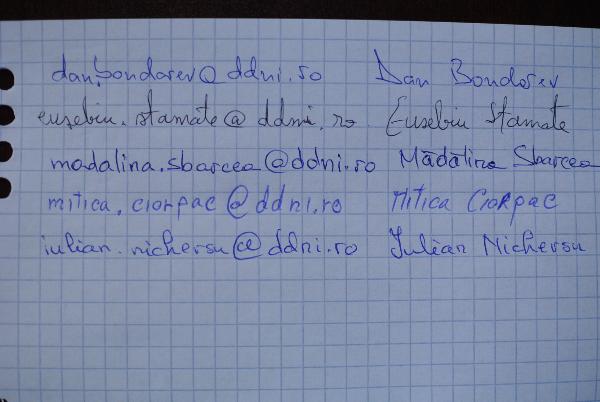 dan.bondarev@ddni.ro Dan Bondarev
eusebiu.stamate@ddni.ro Eusebiu Stamate
madalina.sbarcea@ddni.ro Mădălina Sbarcea
mitica.ciorpac@ddni.ro Mitica Ciorpac
iulian.nichersu@ddni.ro Iulian Nichersu